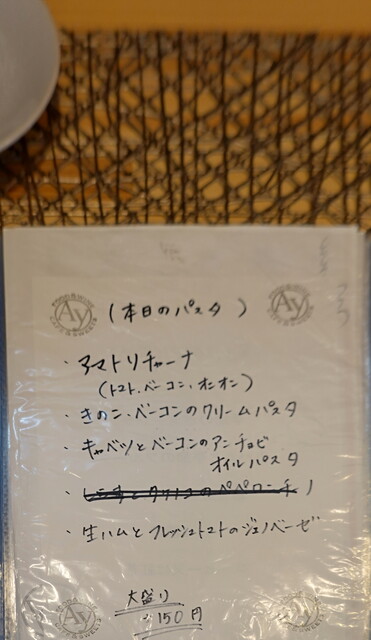 (本日のパスタ)
・アマトリチャーナ
(トマト、ベーコン、オニオン)
・きのこ・ベーコンのクリームパスタ
・キャベツとベーコンのアンチョビ
オイルパスタ
・生ハムとフレッシュトマトのジェノベーゼ
大盛り
150円
Ay
Ay